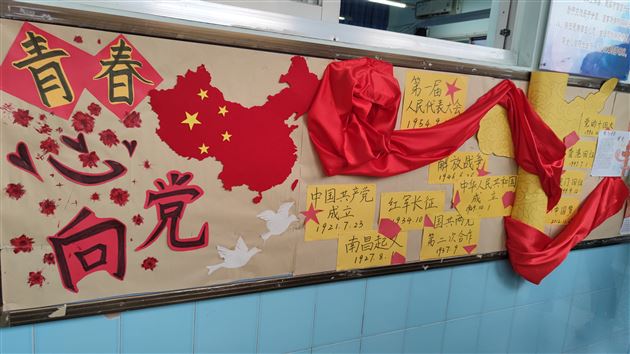 青春
心向党
中国共产党
成立
1921.7.23
南昌起义
1927.8.
红军长征
1934.10
国共两党
第二次合作
1937.9
解放战争
中华人民共和国
成立
1949.10.1
第一届
人民代表大会
1954.9
香港回归
中国梦